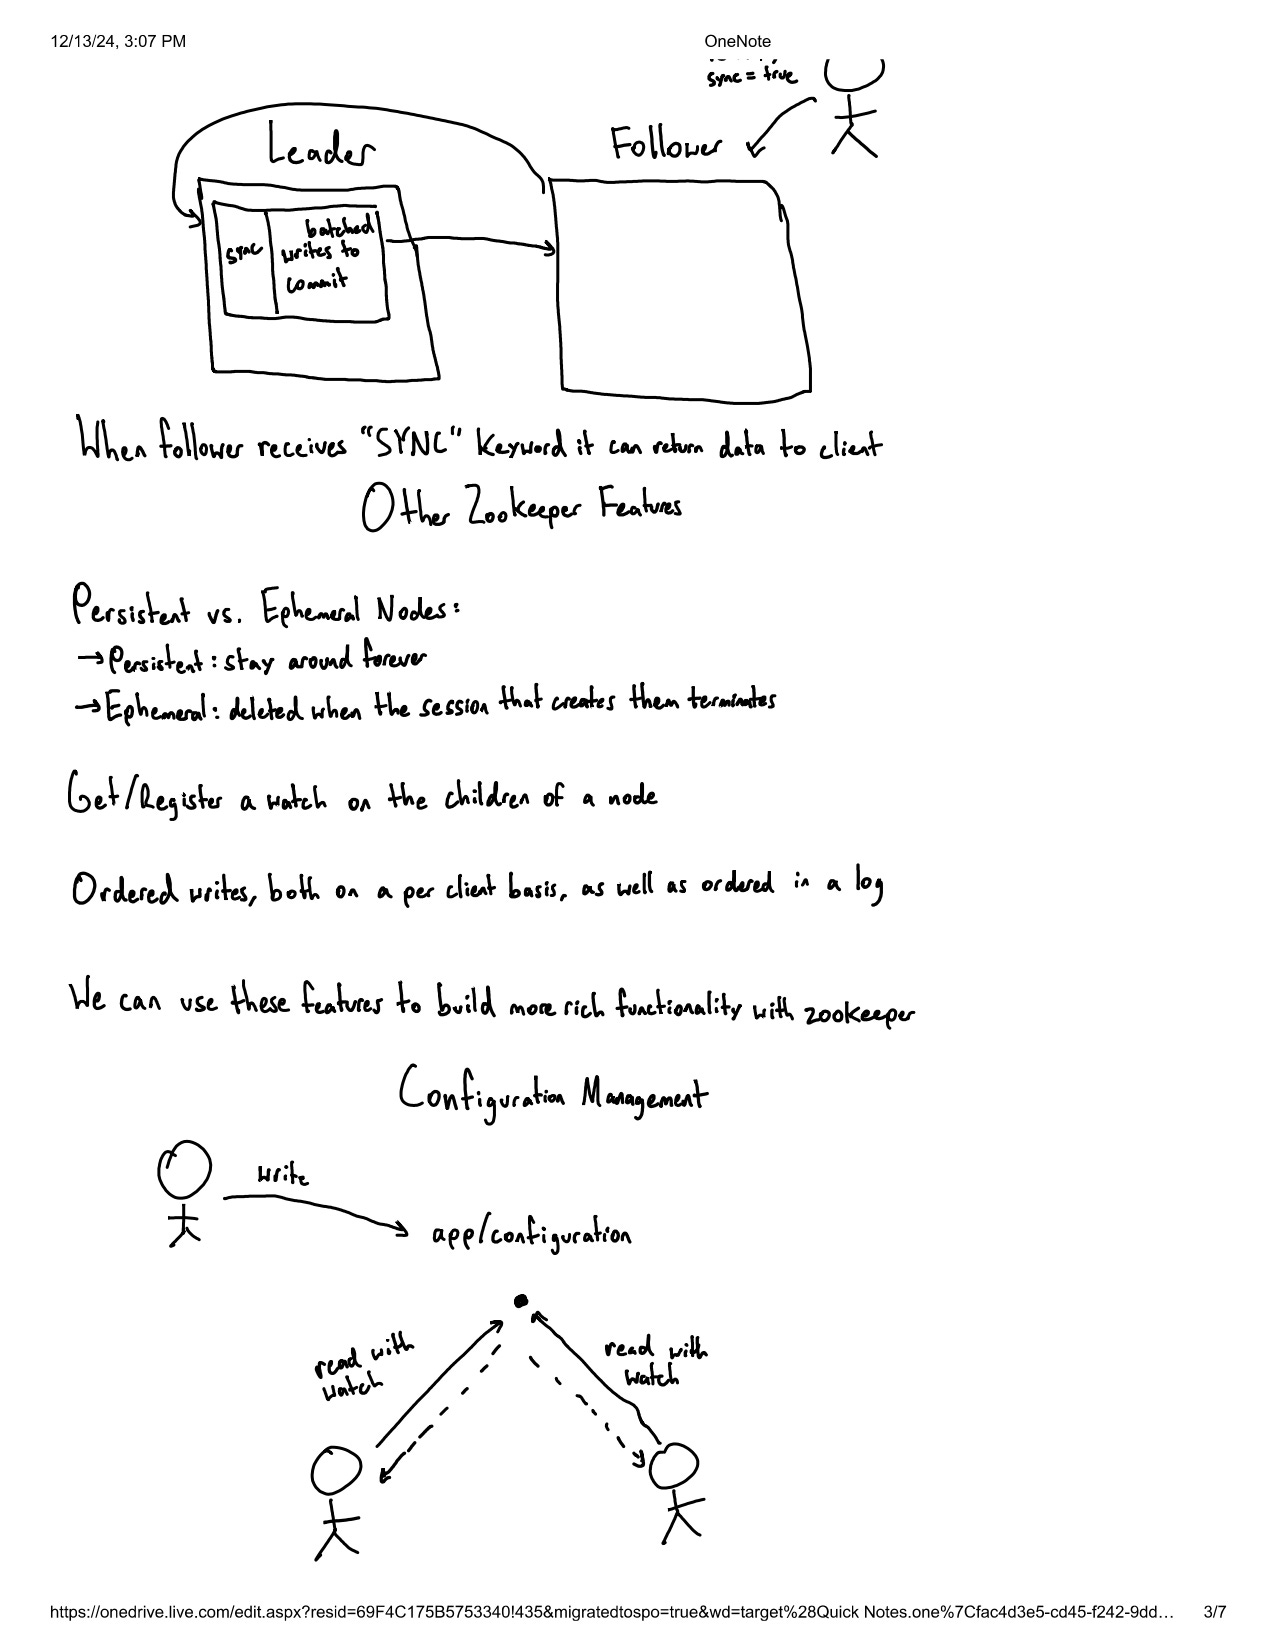 12/13/24, 3:07 PM OneNote
sync = true
Leader
Follower
sync
batched
writes to
commit
When follower receives "SYNC" keyword it can return data to client
Other Zookeeper Features
Persistent vs. Ephemeral Nodes:
→ Persistent: stay around forever
→ Ephemeral: deleted when the session that creates them terminates
Get/Register a watch on the children of a node
Ordered writes, both on a per client basis, as well as ordered in a log
We can use these features to build more rich functionality with zookeeper
Configuration Management
write
app/configuration
read with
watch
read with
watch
https://onedrive.live.com/edit.aspx?resid=69F4C175B5753340!435&migratedtospo=true&wd=target%28Quick Notes.one%7Cfac4d3e5-cd45-f242-9dd… 3/7